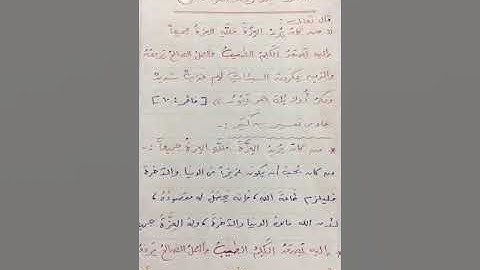 قال تعالى :
(( من كان يريد العزة فلله العزة جميعاً
إليه يصعد الكلم الطيب والعمل الصالح يرفعه
والذين يمكرون السيئات لهم عذاب شديد
ومكر أولئك هو يبور )) [فاطر : ١٠]
تفسير ابن كثير :
* من كان يريد العزة فلله العزة جميعاً :
من كان يحب أن يكون عزيزاً في الدنيا والآخرة
فليلزم طاعة الله ، فإنه يحصل له مقصوده ،
لأن الله مالك الدنيا والآخرة ، وله العزة جميعاً
* إليه يصعد الكلم الطيب والعمل الصالح يرفعه